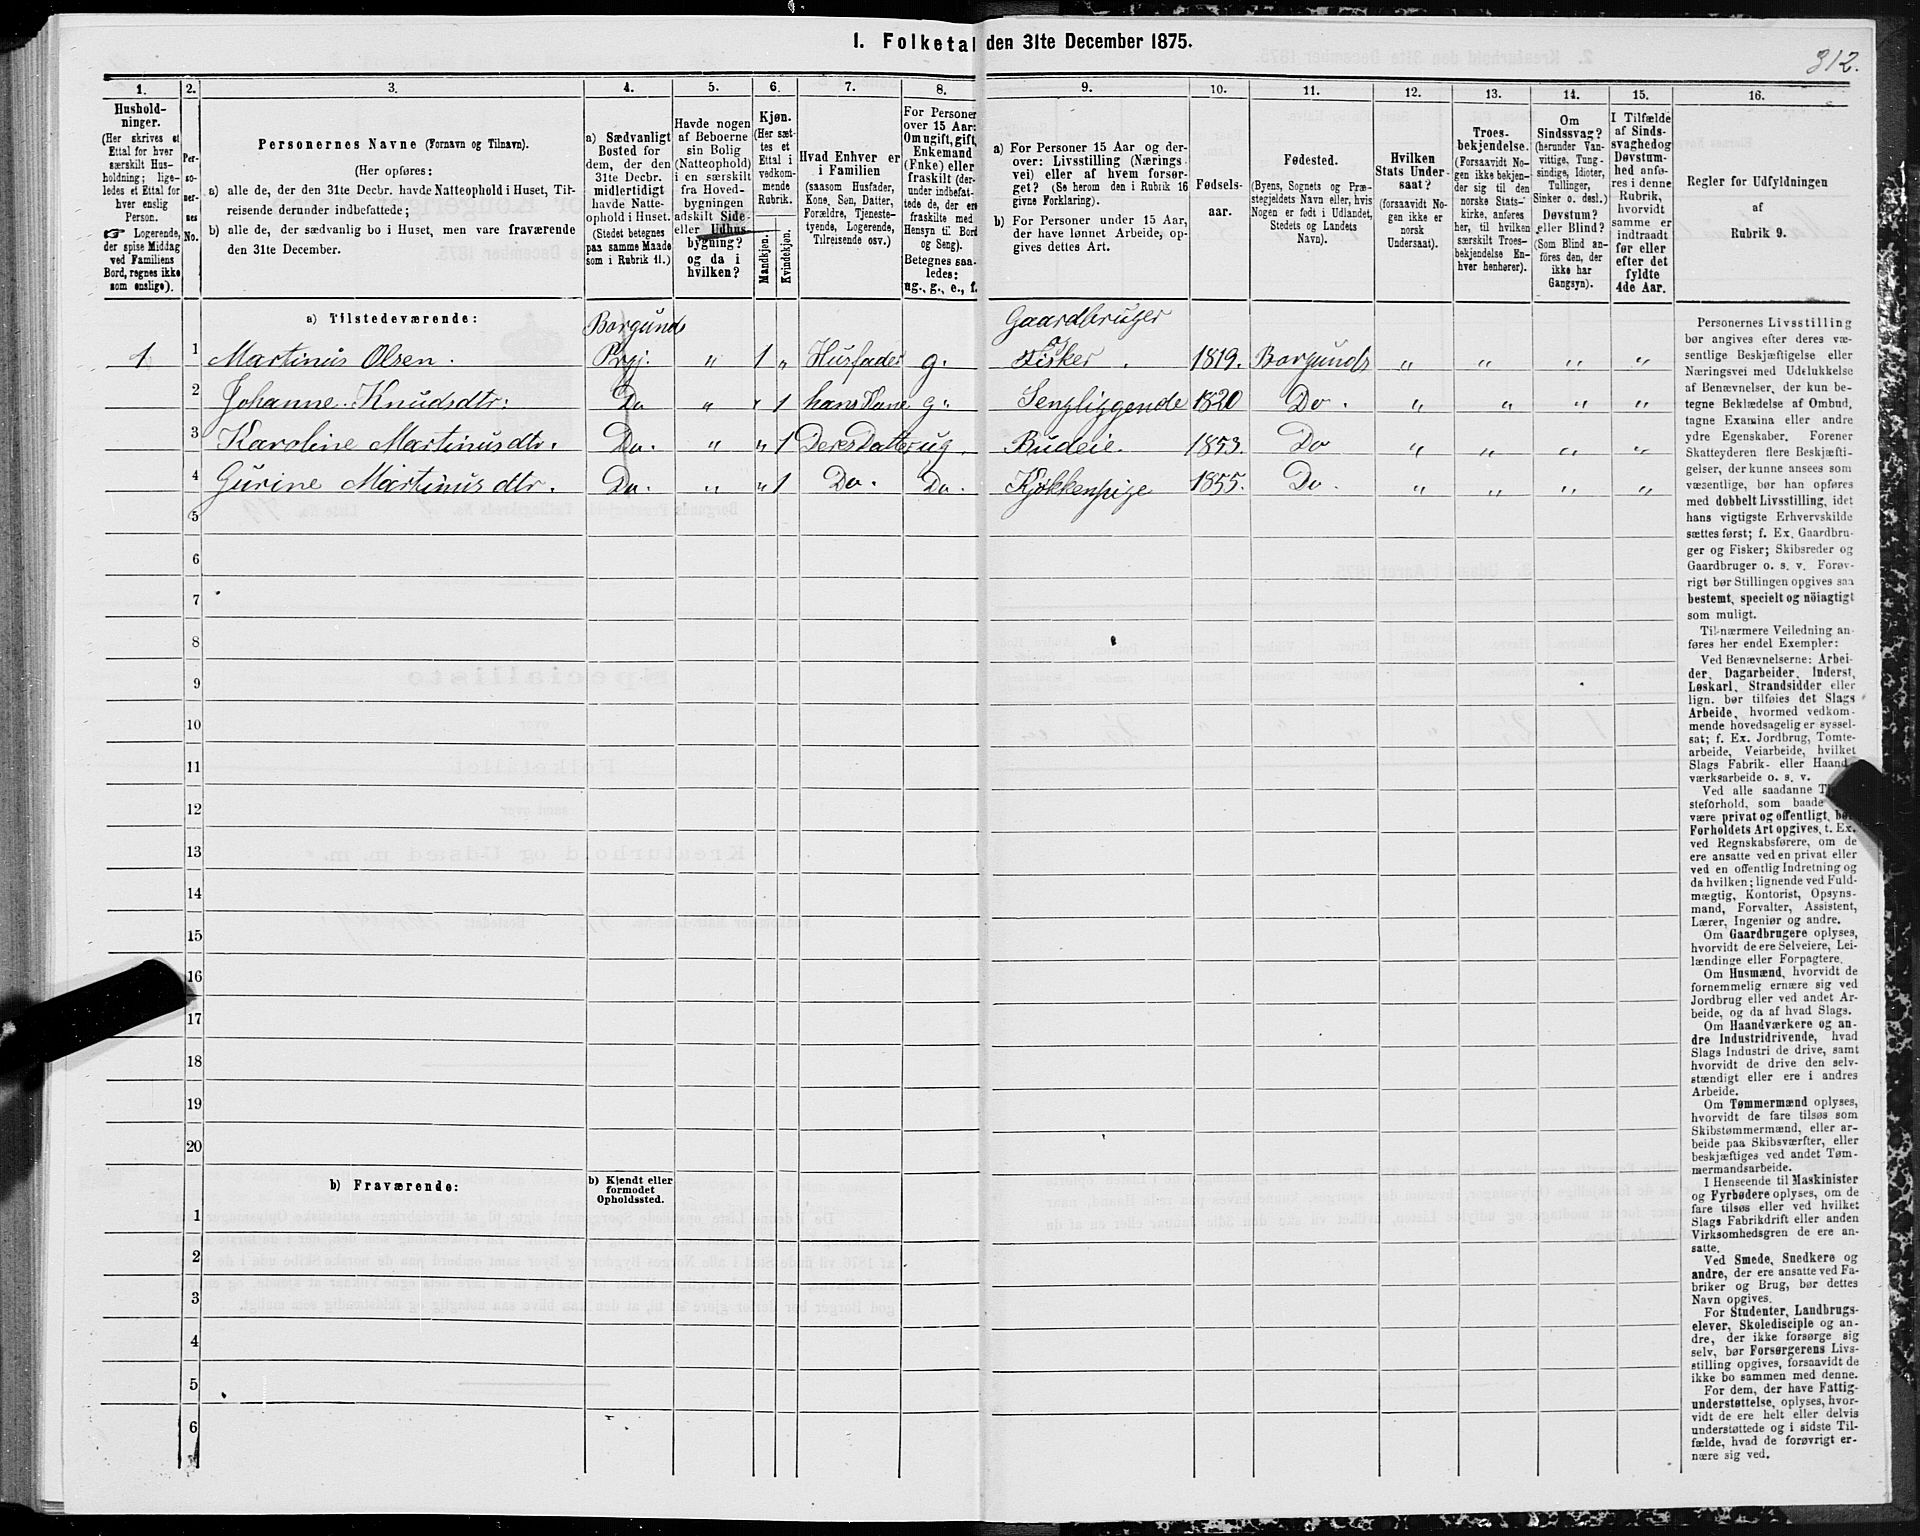 1. Folketal den 31te December 1875.
312.
1. 2. 3. 4. 5. 6. 7. 8. 9. 10. 11. 12. 13. 14. 15. 16.
Hushold-
ninger.
(Her skrives et
Ettal for hver
særskilt Hus-
holdning; lige-
ledes et Ettal for
hver enslig
Person.
☞ Logerende,
der spise Middag
ved Familiens
Bord, regnes ikke
som enslige).
Per-
so-
ner-
nes
No.
Personernes Navne (Fornavn og Tilnavn).
(Her opføres:
a) alle de, der den 31te Decbr. havde Natteophold i Huset, Til-
reisende derunder indbefattede;
b) alle de, der sædvanlig bo i Huset, men vare fraværende
den 31te December.
a) Sædvanligt
Bosted for
dem, der den
31te Decbr.
midlertidigt
havde Natte-
ophold i Huset.
(Stedet betegnes
paa samme Maade
som i Rubrik 11.)
Havde nogen
af Beboerne
sin Bolig
(Natteophold)
i en særskilt
fra Hoved-
bygningen
adskilt Side-
eller Udhus-
bygning?
og da i
hvilken?
Kjøn.
(Her sæt-
tes et
Ettal i
vedkom-
mende
Rubrik.
Mandkjøn.
Kvindekjøn.
Hvad Enhver er
i Familien
(saasom Husfader,
Kone, Søn, Datter,
Forældre, Tjeneste-
tyende, Logerende,
Tilreisende osv.)
For Personer
over 15 Aar:
Om ugift, gift,
Enkemand
(Enke) eller
fraskilt (der-
under indbefat-
tede de, der ere
fraskilte med
Hensyn til Bord
og Seng).
Betegnes saa-
ledes:
ug., g., e., f.
a) For Personer 15 Aar og der-
over: Livsstilling (Nærings-
vei) eller af hvem forsør-
get? (Se herom den i Rubrik 16
givne Forklaring).
b) For Personer under 15 Aar,
der have lønnet Arbeide, op-
gives dettes Art.
Fødsels-
aar.
Fødested.
(Byens, Sognets og Præ-
stegjeldets Navn eller, hvis
Nogen er født i Udlandet,
Stedets og Landets
Navn).
Hvilken
Stats Under-
saat?
(forsaavidt No-
gen ikke er
norsk
Undersaat).
Troes-
bekjendelse.
(Forsaavidt No-
gen ikke bekjen-
der sig til den
norske Stats-
kirke, anføres
her, til hvilken
særskilt Troes-
bekjendelse En-
hver henhører).
Om
Sindssvag?
(herunder Van-
vittige, Tung-
sindige, Idioter,
Tullinger,
Sinker o. desl.)
Døvstum?
eller Blind?
(Som Blind an-
føres den, der
ikke har
Gangsyn).
I Tilfælde
af Sinds-
svaghed og
Døvstum-
hed anfø-
res i denne
Rubrik,
hvorvidt
samme er
indtraadt
før eller
efter det
fyldte
4de Aar.
Regler for Udfyldningen
af
Rubrik 9.
a) Tilstedeværende:
Borgunds
Gaardbruger
og
1 1 Martinus Olsen. Prgj. " 1 " Husfader g. Fisker. 1819. Borgunds " " " "
2 Johanne Knudsdtr: Do " " 1 hans Kone g. Sengliggende 1820 Do. " " " "
3 Karoline Martinusdtr. Do. " " 1 Deres Datter ug. Budeie. 1853. Do " " " "
4 Gurine Martinusdtr. Do. " " 1 Do. Do. Kjøkkenpige 1855. Do. " " " "
5
6
7
8
9
10
11
12
13
14
15
16
17
18
19
20
b) Fraværende:
b) Kjendt eller
formodet
Opholdssted.
1
2
3
4
5
6
Personernes Livsstilling
bør angives efter deres væ-
sentlige Beskjæftigelse eller
Næringsvei med Udelukkelse
af Benævnelser, der kun be-
tegne Beklædelse af Ombud,
tagne Examina eller andre
ydre Egenskaber. Forener
Skatteyderen flere Beskjæfti-
gelser, der kunne ansees som
væsentlige, bør han opføres
med dobbelt Livsstilling, idet
hans vigtigste Erhvervskilde
sættes først; f. Ex. Gaardbru-
ger og Fisker; Skibsreder og
Gaardbruger o. s. v. Forøv-
rigt bør Stillingen opgives saa
bestemt, specielt og nöiagtigt
som muligt.
Til nærmere Veiledning an-
føres her endel Exempler:
Ved Benævnelserne: Arbei-
der, Dagarbeider, Inderst,
Løskarl, Strandsidder eller
lign. bør tilføies det Slags
Arbeide, hvormed vedkom-
mende hovedsagelig er syssel-
sat; f. Ex. Jordbrug, Tomte-
arbeide, Veiarbeide, hvilket
Slags Fabrik- eller Haand-
værksarbeide o. s. v.
Ved alle saadanne
steforhold, som baade
være privat og offentligt, bør
Forholdets Art opgives, t. Ex.
ved Regnskabsførere, om de
ere ansatte ved en privat eller
ved en offentlig Indretning og
da hvilken; lignende ved Fuld-
mægtig, Kontorist, Opsyns-
mand, Forvalter, Assistent,
Lærer, Ingeniør og andre.
Om Gaardbrugere oplyses,
hvorvidt de ere Selveiere, Lei-
lændinge eller Forpagtere.
Om Husmænd, hvorvidt de
fornemmelig ernære sig ved
Jordbrug eller ved andet Ar-
beide, og da af hvad Slags.
Om Haandværkere og an-
dre Industridrivende, hvad
Slags Industri de drive, samt
hvorvidt de drive den selv-
stændigt eller ere i andres
Arbeide.
Om Tømmermænd oplyses,
hvorvidt de fare tilsøs som
Skibstømmermænd, eller ar-
beide paa Skibsværfter, eller
beskjæftiges ved andet Tøm-
mermandsarbeide.
I Henseende til Maskinister
og Fyrbødere oplyses, om de
fare tilsøs eller ved hvilket
Slags Fabrikdrift eller anden
Virksomhedsgren de ere an-
satte.
Ved Smede, Snedkere og
andre, der ere ansatte ved Fa-
briker og Brug, bør dettes
Navn opgives.
For Studenter, Landbrugs-
elever, Skoledisciple og an-
dre, der ikke forsørge sig
selv, bør Forsørgerens Livs-
stilling opgives, forsaavidt de
ikke bo sammen med denne.
For dem, der have Fattig-
understøttelse, oplyses, hvor-
vidt de ere helt eller delvis
understøttede og i sidste Til-
fælde, hvad de forøvrigt er-
nære sig ved.